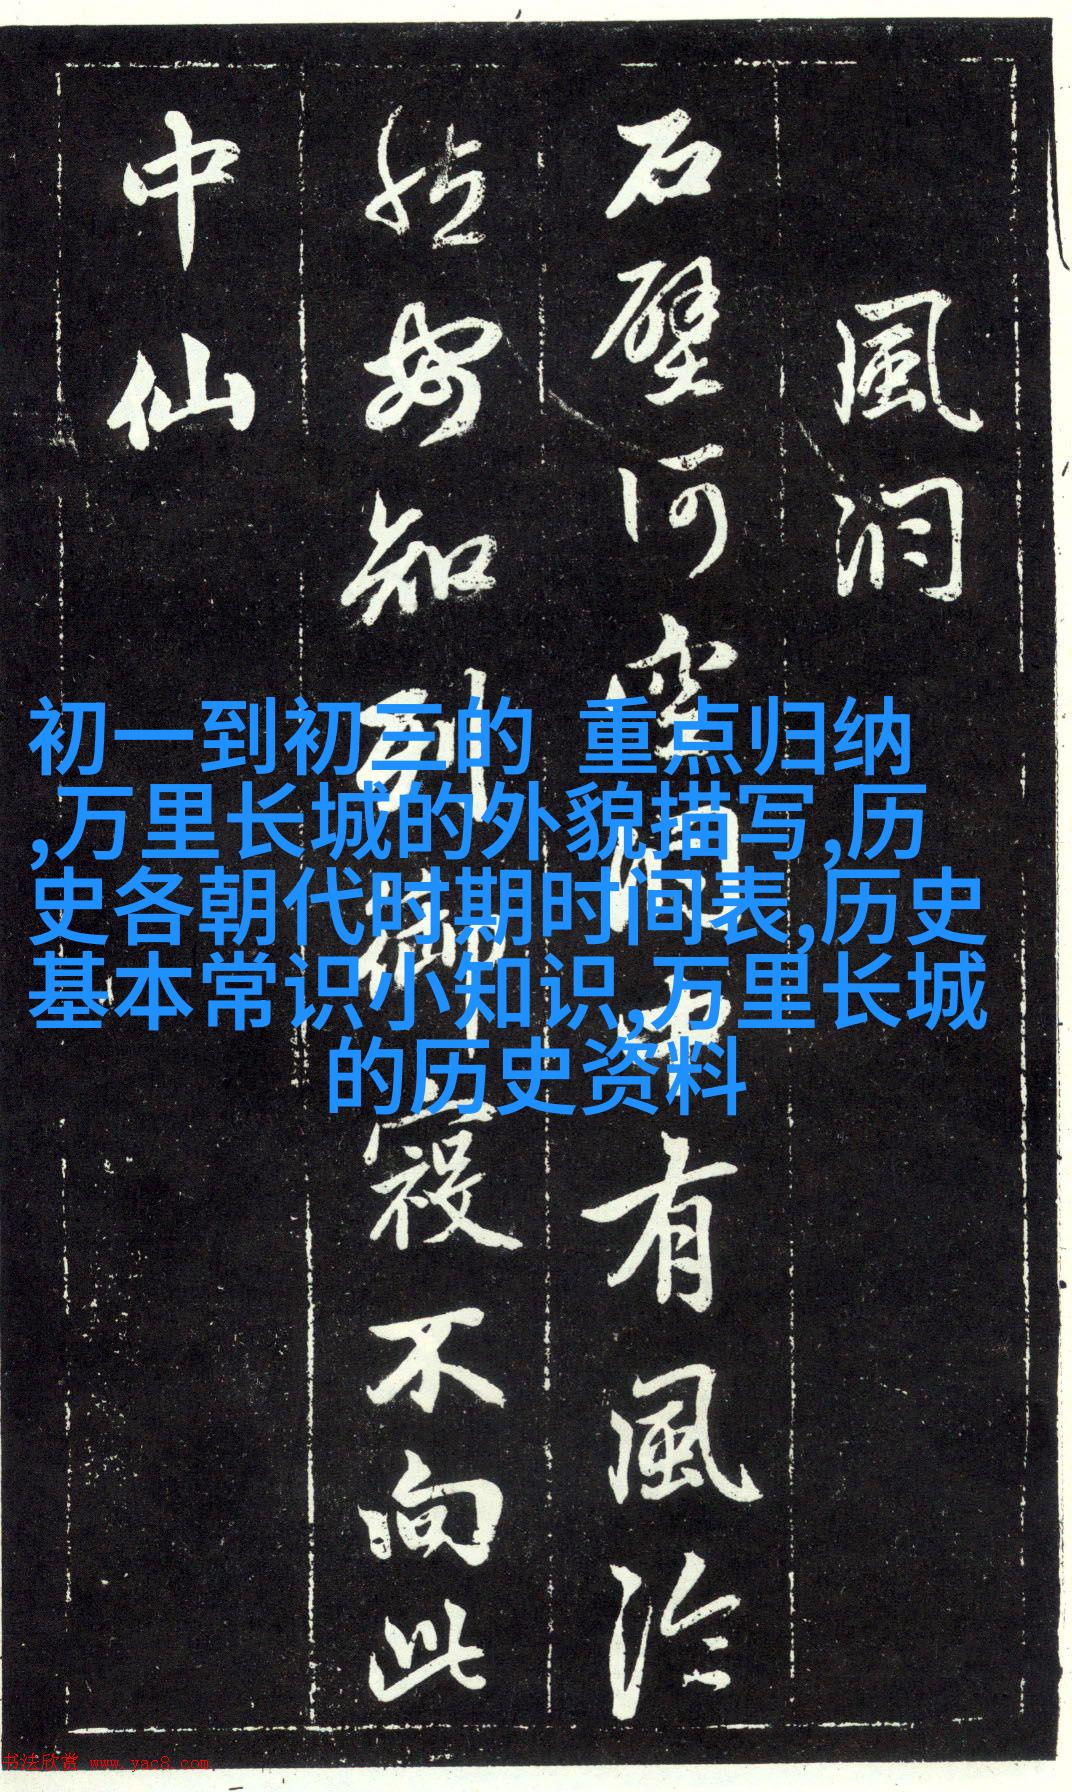 風洞
石壁何空洞中有風泠
然安知列御寇不向此
中仙
初一到初三的 重点归纳
,万里长城的外貌描写,历
史各朝代时期时间表,历史
基本常识小知识,万里长城
的历史资料
书法欣赏 www.yac8.com